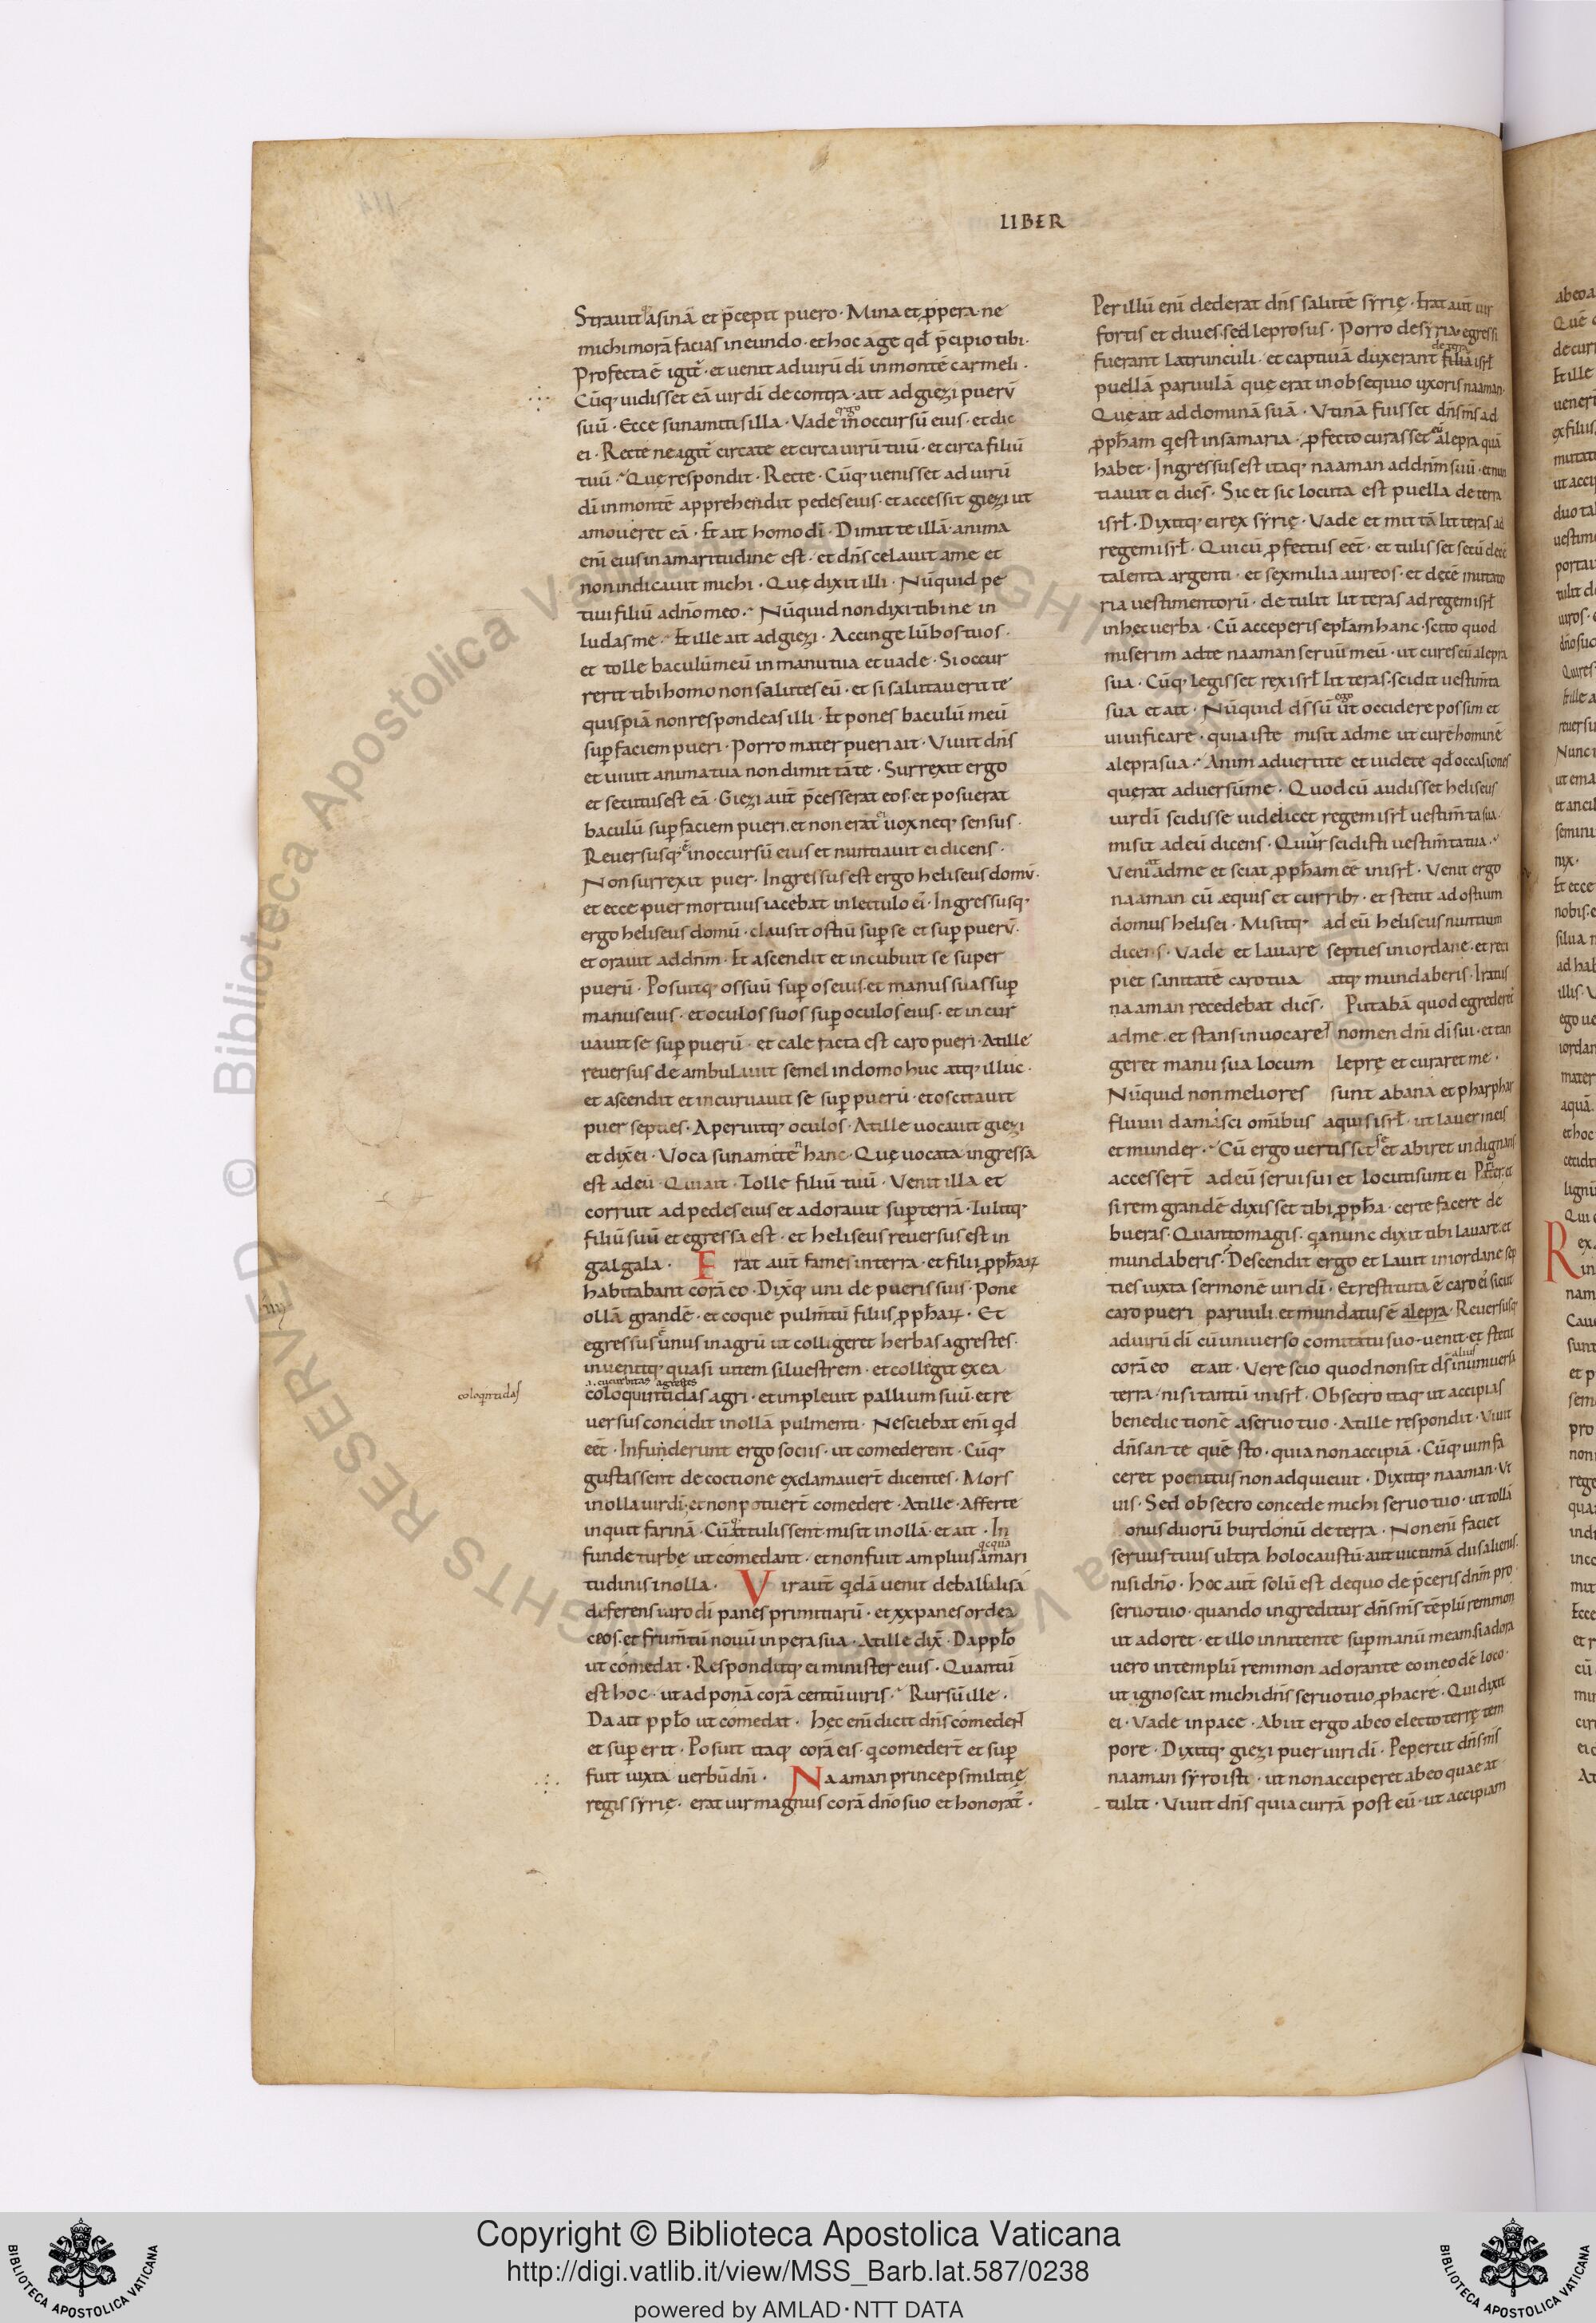 LIBER
Strauit asinā et p̄cepit puero · Mina et ꝓpera · ne
michi morā facias in eundo · et hoc age qđ p̄cipio tibi ·
Profecta ē igit᷑ · et uenit ad uirū dī in montē carmeli ·
Cūq; uidisset eā uir dī de contra · ait ad giezi puerū
suū · Ecce sunamitis illa · Vade ergo in occursū eius · et dic
ei · Recte ne igit᷑ circa te et circa uirū tuū · et circa filiū
tuū · Quę respondit · Recte · Cūq; uenisset ad uirū
dī in montē apprehendit pedes eius · et accessit giezi ut
amoueret eā · Et ait homo dī · Dimitte illā · anima
enī eius in amaritudine est · et dn̄s celauit a me et
non indicauit michi · Quę dixit illi · Nūquid pe
tiui filiū a dn̄o meo · Nūquid non dixi tibi ne in
ludas me · Et ille ait ad giezi · Accinge lūbos tuos ·
et tolle baculū meū in manu tua et uade · Si occur
rerit tibi homo non salutes eū · et si salutauerit te
quispiā non respondeas illi · Et pones baculū meū
suꝑ faciem pueri · Porro mater pueri ait · Viuit dn̄s
et uiuit anima tua non dimittā te · Surrexit ergo
et secutus est eā · Giezi aut̄ p̄cesserat eos · et posuerat
baculū suꝑ faciem pueri · et non erat ei uox neq; sensus ·
Reuersusq; ē in occursū eius et nuntiauit ei dicens ·
Non surrexit puer · Ingressus est ergo heliseus domū ·
et ecce puer mortuus iacebat in lectulo ei᷑ · Ingressusq;
ergo heliseus domū · clausit ostiū suꝑ se et suꝑ puerū ·
et orauit ad dn̄m · Et ascendit et incubuit se super
puerū · Posuitq; os suū suꝑ os eius · et manus suas suꝑ
manus eius · et oculos suos suꝑ oculos eius · et incur
uauit se suꝑ puerū · et calefacta est caro pueri · At ille
reuersus deambulauit semel in domo huc atq; illuc ·
et ascendit et incuruauit se suꝑ puerū · et oscitauit
puer septies · Aperuitq; oculos · At ille uocauit giezi
et dix̄ ei · Voca sunamitēn hanc · Quę uocata ingressa
est ad eū · Qui ait · Tolle filiū tuū · Venit illa et
corruit ad pedes eius et adorauit suꝑ terrā · Tulitq;
filiū suū et egressa est · et heliseus reuersus est in
galgala · Erat aut̄ fames in terra · et filii ꝓph̄aꝝ
habitabant corā eo · Dix̄q; uni de pueris suis · Pone
ollā grandē · et coque pulm̄tū filiis ꝓph̄aꝝ · Et
egressus ē unus in agrū ut colligeret herbas agrestes ·
inuenitq; quasi uitem siluestrem · et collegit ex ea
.i. cucurbitas agrestes
coloquintidas
coloquintidas agri · et impleuit pallium suū · et re
uersus concidit in ollā pulmenti · Nesciebat enī qd
eēt · Infuderunt ergo sociis · ut comederent · Cūq;
gustassent de coctione exclamauert̄ dicentes · Mors
in olla uir dī · et non potuert̄ comedere · At ille · Afferte
inquit farinā · Cū attulissent misit in ollā · et ait · In
funde turbę ut comedant · et non fuit amplius qcquā amari
tudinis in olla · Vir aut̄ qdā uenit de balsalisa
deferens uiro dī panes primitiarū · et xx panes ordea
ceos · et frum̄tū nouū in pera sua · At ille dix̄ · Da pplo
ut comedat · Responditq; ei minister eius · Quantū
est hoc · ut adponā corā centū uiris · Rursū ille ·
Da ait pplo ut comedat · Hęc enī dicit dn̄s comedert̄
et suꝑerit · Posuit itaq; corā eis · q comedert̄ et suꝑ
fuit iuxta uerbū dn̄i · Naaman princeps militię
regis syrię · erat uir magnus corā dn̄o suo et honorat᷑ ·
Per illū enī dederat dn̄s salutē syrię · Erat aut̄ uir
fortis et diues · sed leprosus · Porro de syria egressi
fuerant latrunculi · et captiuā duxerant de terra filiā isrł
puellā paruulā quę erat in obsequio uxoris naaman ·
Quę ait ad dominā suā · Vtinā fuisset dn̄s m̄s ad
ꝓph̄am q est in samaria · ꝓfecto curasset eū a lepra quā
habet · Ingressus est itaq; naaman ad dn̄m suū · et nun
tiauit ei dicēs · Sic et sic locuta est puella de terra
isrł · Dixitq; ei rex syrię · Vade et mittā litteras ad
regem isrł · Qui cū ꝓfectus eēt · et tulisset secū decē
talenta argenti · et sex milia aureos · et decē mutato
ria uestimentorū · detulit litteras ad regem isrł
in hec uerba · Cū acceperis epłam hanc · scito quod
miserim ad te naaman seruū meū · ut cures eū a lepra
sua · Cūq; legisset rex isrł litteras · scidit uestim̄ta
sua et ait · Nūquid ds̄ sū ego ut occidere possim et
uiuificare · quia iste misit ad me ut curē hominē
a lepra sua · Animaduertite et uidete qđ occasiones
quęrat aduersū me · Quod cū audisset heliseus
uir dī scidisse uidelicet regem isrł uestim̄ta sua ·
misit ad eū dicens · Quur scidisti uestim̄ta tua ·
Veniat ad me et sciat ꝓph̄am eē in isrł · Venit ergo
naaman cū equis et curribꝫ · et stetit ad ostium
domus helisei · Misitq; ad eū heliseus nuntium
dicens · Vade et lauare septies in iordane · et reci
piet sanitatē caro tua atq; mundaberis · Iratus
naaman recedebat dicēs · Putabā quod egrederet᷑
ad me · et stans inuocaret nomen dn̄i dī sui · et tan
geret manu sua locum leprę et curaret me ·
Nūquid non meliores sunt abana et pharphar
fluuii damasci omībus aquis isrł · ut lauer in eis
et munder · Cū ergo uertisset se et abiret indignans
accessert̄ ad eū serui sui et locuti sunt ei · Pat̄er · et
si rem grandē dixisset tibi ꝓph̄a · certe facere de
bueras · Quanto magis · qa nunc dixit tibi lauare · et
mundaberis · Descendit ergo et lauit in iordane sep
ties iuxta sermonē uiri dī · Et restituta ē caro ei᷑ sicut
caro pueri paruuli · et mundatus ē a lepra · Reuersusq;
ad uirū dī cū uniuerso comitatu suo · uenit · et stetit
corā eo et ait · Vere scio quod non sit ds̄ alius in uniuersa
terra · nisi tantū in isrł · Obsecro itaq; ut accipias
benedictionē a seruo tuo · At ille respondit · Viuit
dn̄s an̄te quē sto · quia non accipiā · Cūq; uim fa
ceret poenitus non adquieuit · Dixitq; naaman · Vt
uis · Sed obsecro concede michi seruo tuo · ut tollā
onus duorū burdonū de terra · Non enī faciet
seruus tuus ultra holocaustū aut uictimā diis alienis ·
nisi dn̄o · Hoc aut̄ solū est de quo dep̄ceris dn̄m pro
seruo tuo · quando ingreditur dn̄s m̄s tēplū remmon
ut adoret · et illo innitente suꝑ manū meam · si adora
uero in templū remmon adorante eo in eodē loco ·
ut ignoscat michi dn̄s seruo tuo ꝓ hac re · Qui dixit
ei · Vade in pace · Abiit ergo ab eo electo terrę tem
pore · Dixitq; giezi puer uiri dī · Pepercit dn̄s m̄s
naaman syro isti · ut non acciperet ab eo quae at
tulit · Viuit dn̄s quia currā post eū · ut accipiam
Copyright © Biblioteca Apostolica Vaticana
http://digi.vatlib.it/view/MSS_Barb.lat.587/0238
powered by AMLAD·NTT DATA
BIBLIOTECA APOSTOLICA VATICANA
BIBLIOTECA APOSTOLICA VATICANA